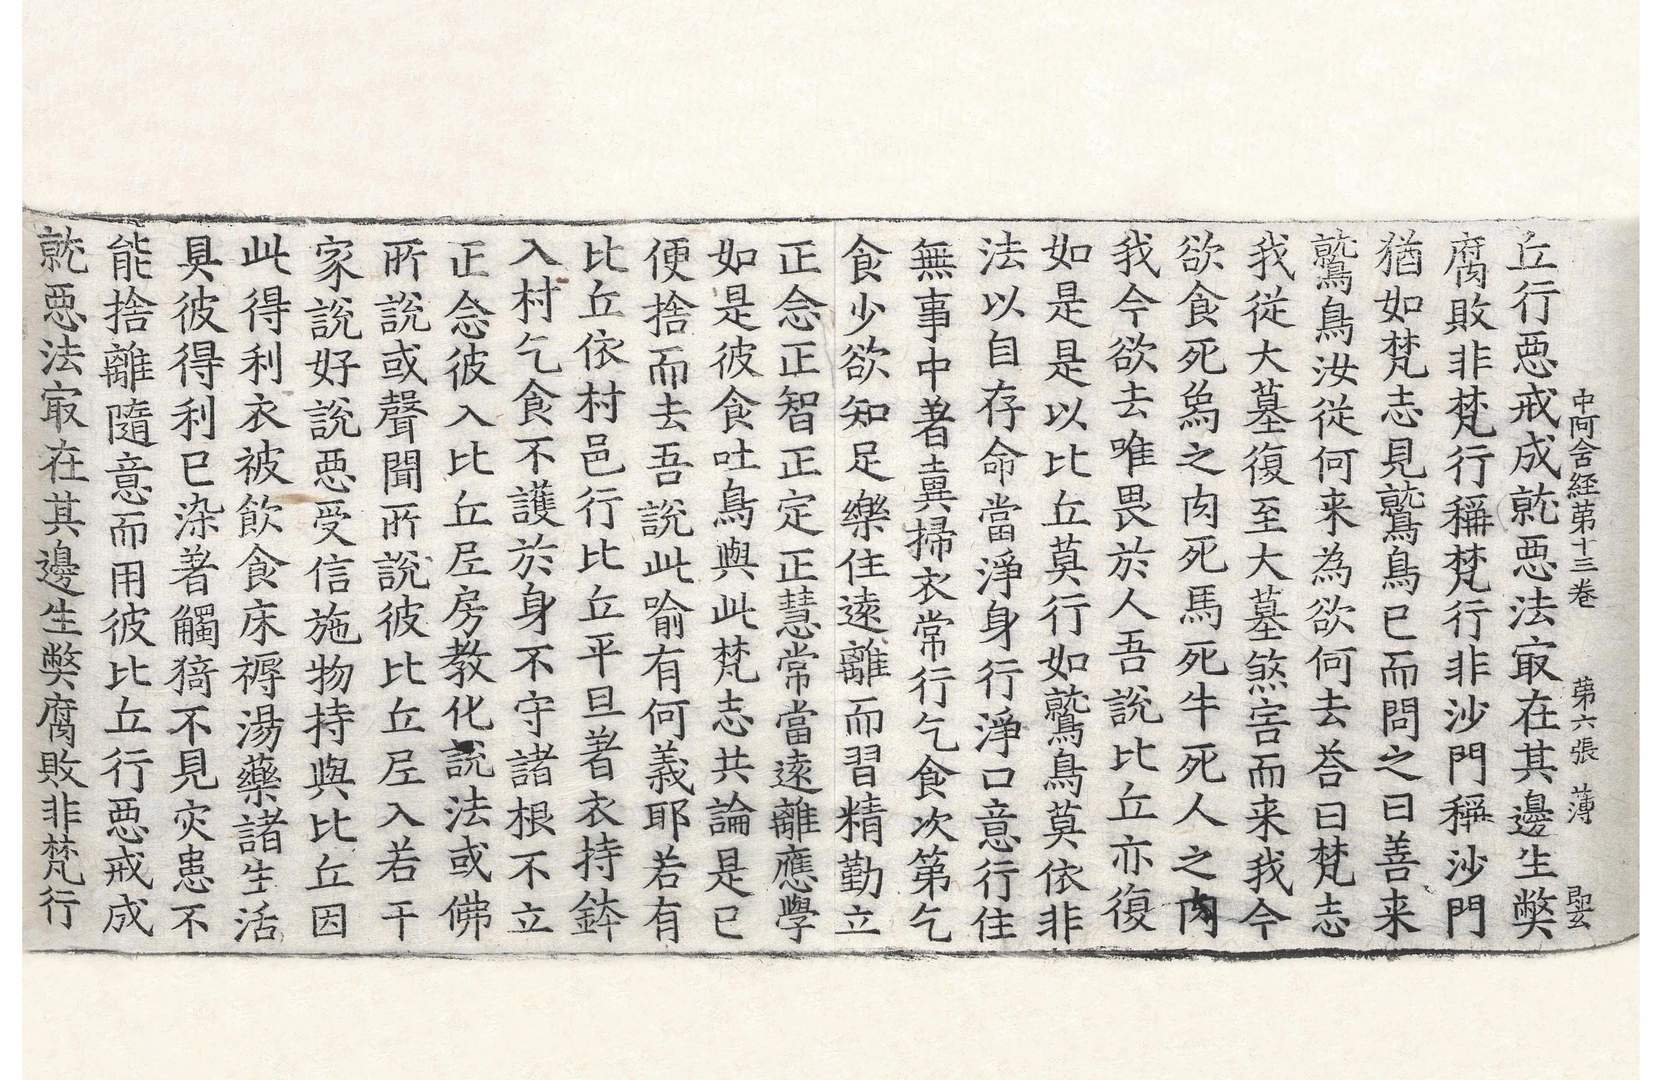 中阿含経苐十三卷　苐六張　薄
丘行悪戒成就悪法㝡在其邊生弊
腐敗非梵行稱梵行非沙門稱沙門
猶如梵志見鷲鳥已而問之曰善来
鷲鳥汝從何来為欲何去荅曰梵志
我從大墓復至大墓煞害而来我今
欲食死烏之肉死馬死牛死人之肉
我今欲去唯畏於人吾說比丘亦復
如是是以比丘莫行如鷲鳥莫依非
法以自存命當淨身行淨口意行住
無事中著糞掃衣常行乞食次第乞
食少欲知足樂住遠離而習精勤立
正念正智正定正慧常當遠離應學
如是彼食吐鳥與此梵志共論是已
便捨而去吾說此喻有何義耶若有
比丘依村邑行比丘平旦著衣持鉢
入村乞食不護於身不守諸根不立
正念彼入比丘㞐房教化說法或佛
所說或聲聞所說彼比丘㞐入若干
家說好說悪受信施物持與比丘因
此得利衣被飲食床褥湯藥諸生活
具彼得利已染著觸猗不見灾患不
能捨離隨意而用彼比丘行悪戒成
就悪法㝡在其邊生弊腐敗非梵行